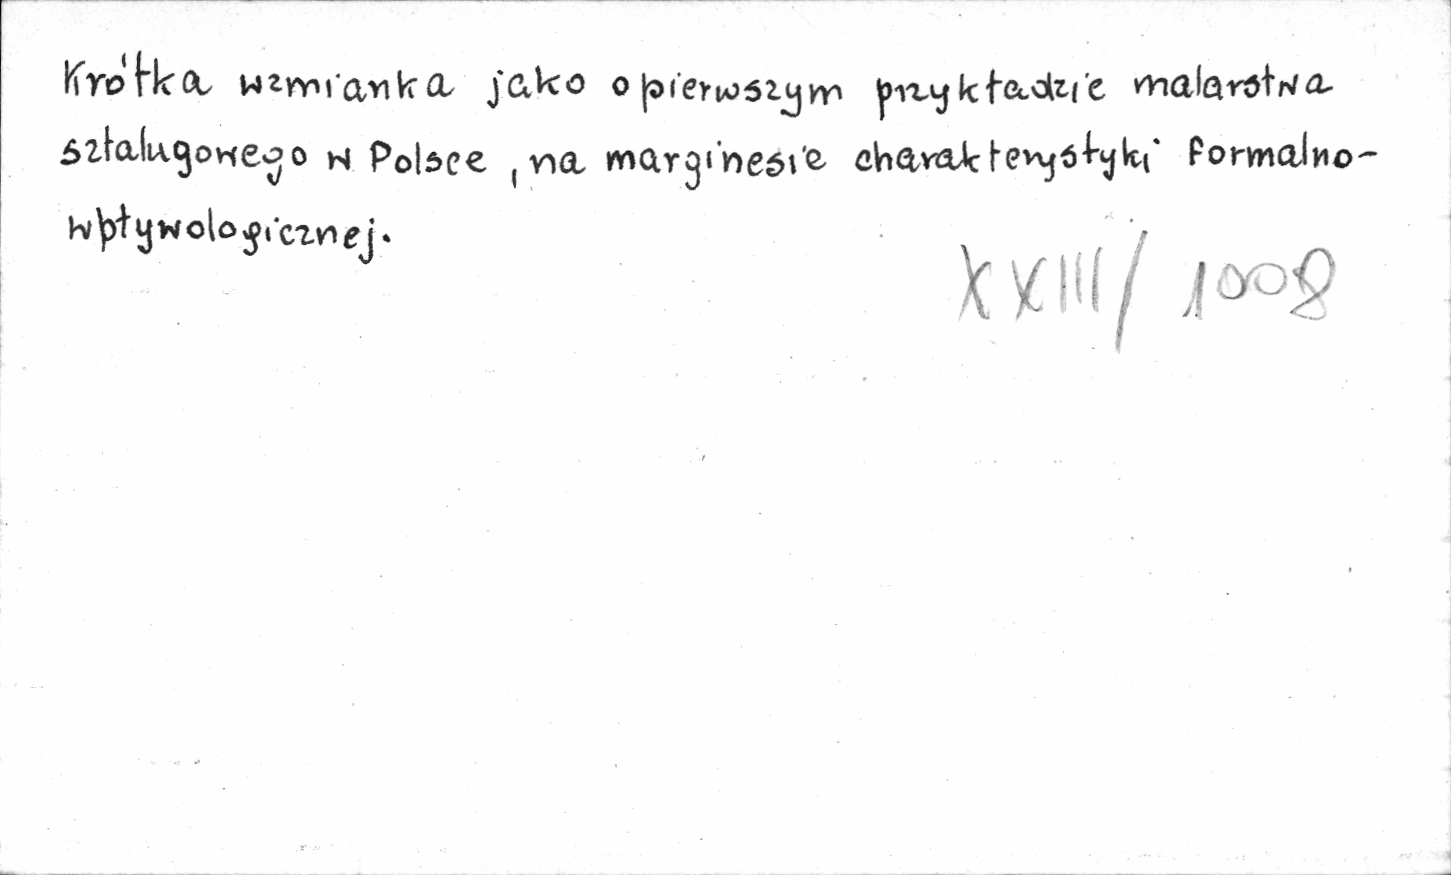 Krótka wzmianka jako o pierwszym przykładzie malarstwa
sztalugowego w Polsce, na marginesie charakterystyki formalno-
wpływologicznej.
XXIII/1008